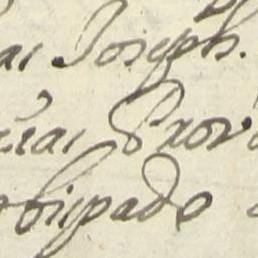 ai Joseph.
ciai Prov
obispado